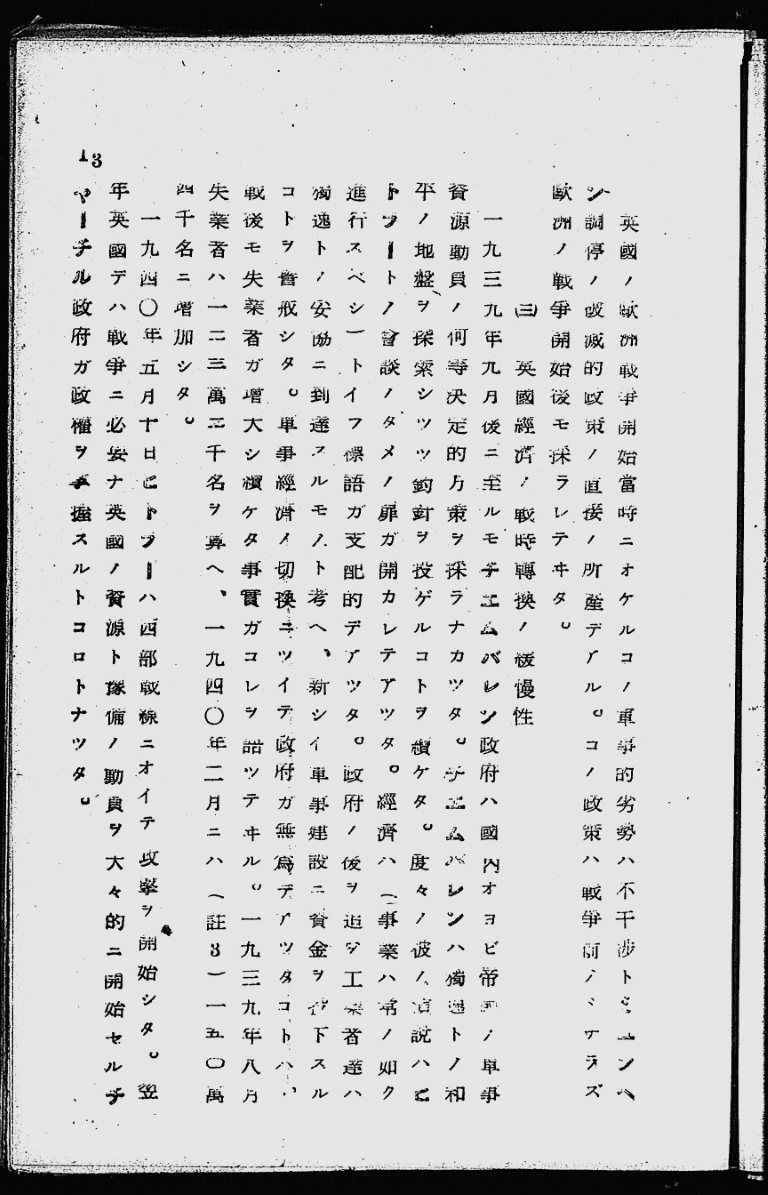 英國ノ歐洲戰爭開始當時ニオケルコノ軍事的劣勢ハ不干渉トミユンヘ
ン調停ノ破滅的政策ノ直接ノ所産デアル。コノ政策ハ戰爭前ノミナラズ
歐洲ノ戰爭開始後モ採ラレテヰタ。
㈢ 英國經濟ノ戰時轉換ノ緩慢性
一九三九年九月後ニ至ルモチエムバレン政府ハ國內オヨビ帝國ノ軍事
資源動員ノ何等決定的方策ヲ採ラナカツタ。チエムバレンハ獨逸トノ和
平ノ地盤ヲ探索シツツ釣針ヲ投ゲルコトヲ續ケタ。度々ノ彼ノ演說ハヒ
トラートノ會談ノタメノ扉ガ開カレテアツタ。經濟ハ(事業ハ常ノ如ク
進行スベシ)トイフ標語ガ支配的デアツタ。政府ノ後ヲ追ヂ工業者達ハ
獨逸トノ安協ニ到達スルモノト考へ、新シイ軍事建設ニ資金ヲ投下スル
コトヲ警戒シタ。軍事經濟ノ切換ニツイテ政府ガ無爲デアツタコトハ、
戰後モ失業者ガ增大シ續ケタ事實ガコレヲ語ツテヰル。一九三九年八月
失業者ハ一二三萬二千名ヲ算へ、一九四〇年二月ニハ(註3)一五〇萬
四千名ニ增加シタ。
一九四〇年五月十日ヒトラーハ西部戰線ニオイテ攻擊ヲ開始シタ。翌
年英國デハ戰爭ニ必要ナ英國ノ資源ト豫備ノ動員ヲ大々的ニ開始セルチ
ヤーチル政府ガ政權ヲ掌握スルトコロトナツタ。
13